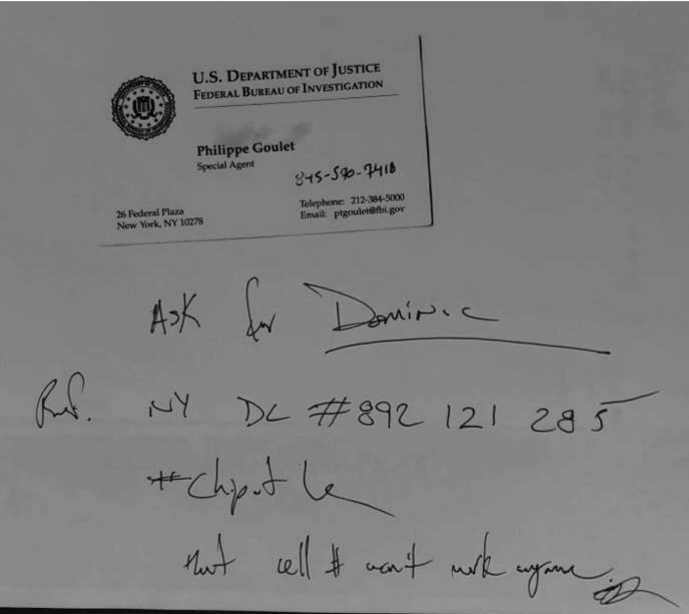 U.S. DEPARTMENT OF JUSTICE
FEDERAL BUREAU OF INVESTIGATION
Philippe Goulet
Special Agent
845-590-7418
26 Federal Plaza
New York, NY 10278
Telephone: 212-384-5000
Email: ptgoulet@fbi.gov
Ask for Dominic
Ref. NY DL #892 121 285
#Chipotle
that cell # won't work anymore